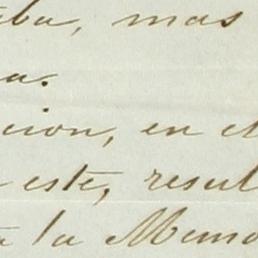 ba, mas
a.
cion, en el
este, resul
a la Mun